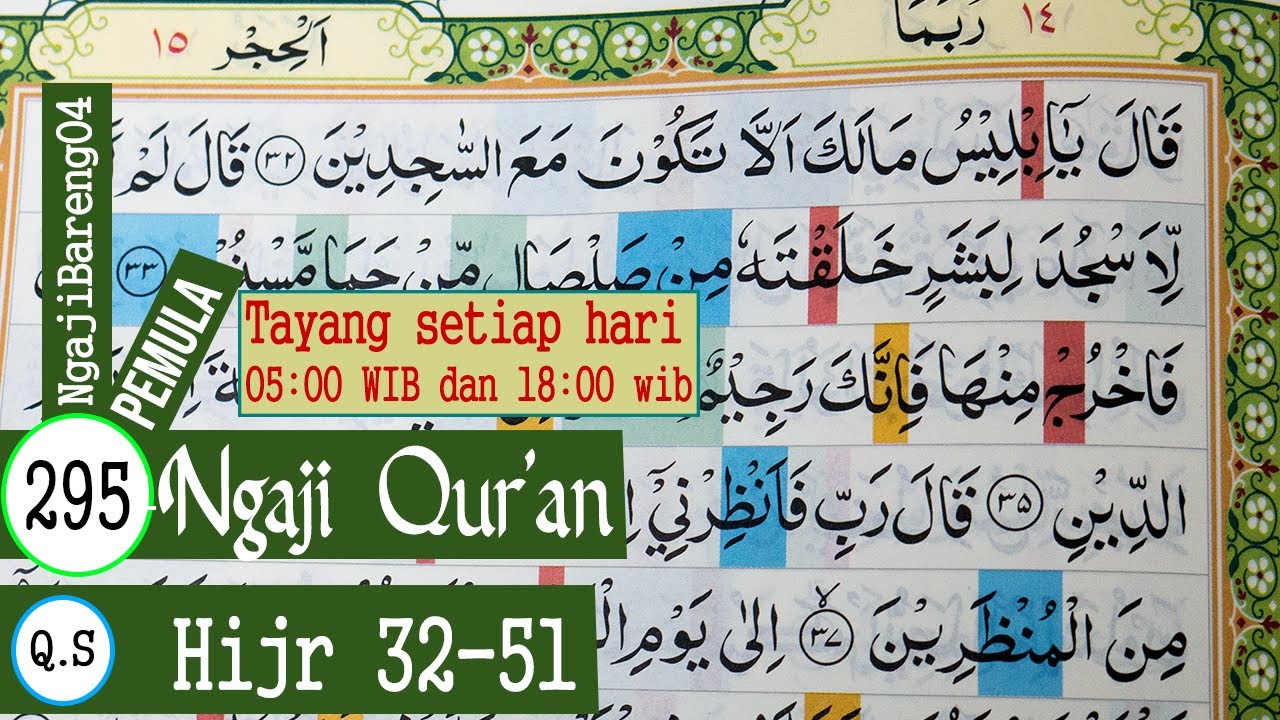 اَلْحِجْر ١٥
رُبَمَا ١٤
قَالَ يٰٓاِبْلِيْسُ مَالَكَ اَلَّا تَكُوْنَ مَعَ السّٰجِدِيْنَ ٣٢ قَالَ لَمْ
لِّاَسْجُدَ لِبَشَرٍ خَلَقْتَهٗ مِنْ صَلْصَالٍ مِّنْ حَمَاٍ مَّسْنُوْنٍ ٣٣
فَاخْرُجْ مِنْهَا فَاِنَّكَ رَجِيْمٌ
الدِّيْنِ ٣٥ قَالَ رَبِّ فَاَنْظِرْنِيْٓ
مِنَ الْمُنْظَرِيْنَ ٣٧ اِلٰى يَوْمِ
NgajiBareng04
PEMULA
Tayang setiap hari
05:00 WIB dan 18:00 wib
295 Ngaji Qur'an
Q.S Hijr 32-51